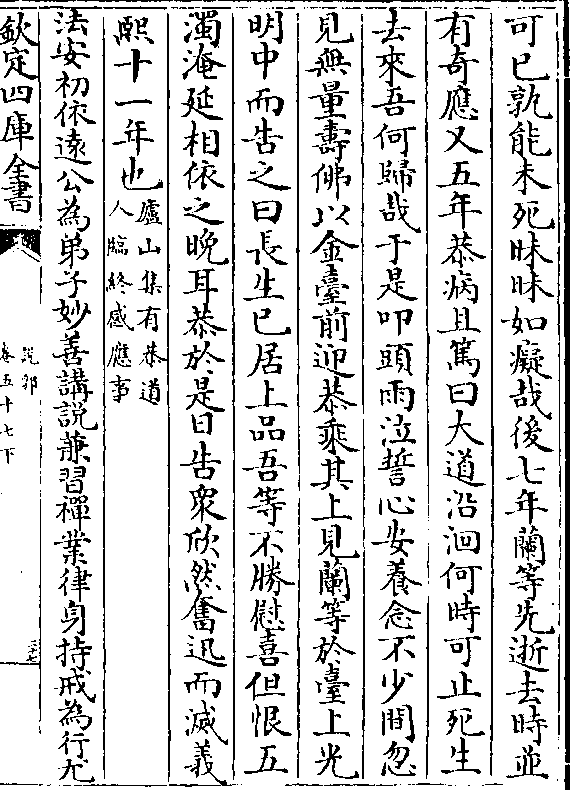 可已孰能未死昧昧如癡哉後七年蘭等先逝去時並
有奇應又五年恭病且篤曰大道沿洄何時可止死生
去來吾何歸哉于是叩頭雨泣誓心安養念不少間忽
見無量壽佛以金臺前迎恭乘其上見蘭等於臺上光
明中而告之曰長生已居上品吾等不勝慰喜但恨五
濁淹延相依之晚耳恭於是日告衆欣然奮迅而滅義
熙十一年也廬山集有恭道
人臨終感應事
法安初依遠公為弟子妙善講説兼習禪業律身持戒為行尤
欽定四庫全書
説郛
卷五十七下